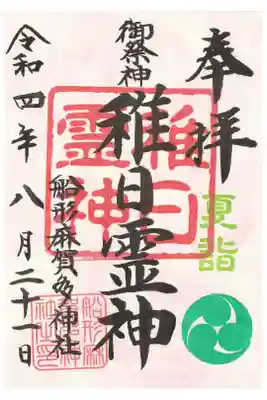 奉拝
夏詣
御祭神
稚日霊神
稚日
霊神
船形麻賀多神社
船形麻
賀多神
社神印
令和四年八月二十一日